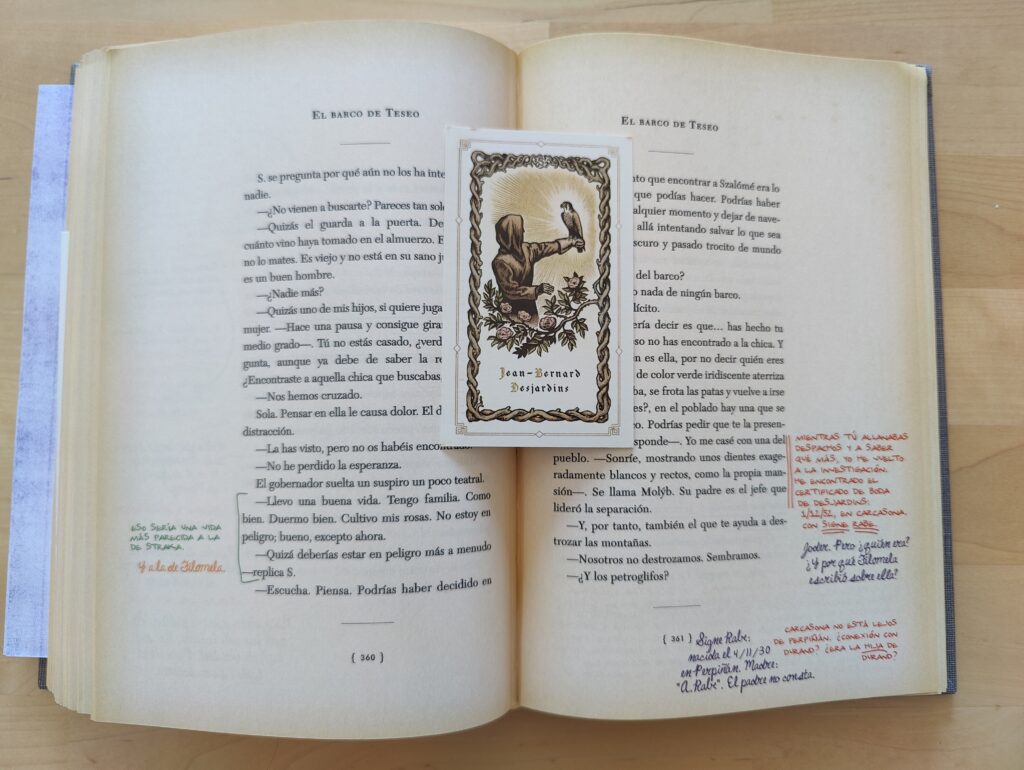 EL BARCO DE TESEO
S. se pregunta por qué aún no los ha inte
nadie.
—¿No vienen a buscarte? Pareces tan solo
—Quizás el guarda a la puerta. De
cuánto vino haya tomado en el almuerzo. E
no lo mates. Es viejo y no está en su sano ju
es un buen hombre.
—¿Nadie más?
—Quizás uno de mis hijos, si quiere juga
mujer. —Hace una pausa y consigue girar
medio grado—. Tú no estás casado, ¿verd
gunta, aunque ya debe de saber la re
¿Encontraste a aquella chica que buscabas,
—Nos hemos cruzado.
Sola. Pensar en ella le causa dolor. El d
distracción.
—La has visto, pero no os habéis encontrado.
—No he perdido la esperanza.
El gobernador suelta un suspiro un poco teatral.
—Llevo una buena vida. Tengo familia. Como
bien. Duermo bien. Cultivo mis rosas. No estoy en
peligro; bueno, excepto ahora.
—Quizá deberías estar en peligro más a menudo
—replica S.
—Escucha. Piensa. Podrías haber decidido en
{ 360 }
ESO SERÍA UNA VIDA
MÁS PARECIDA A LA
DE STRAKA.
Y a la de Filomela.
Jean-Bernard
Desjardins
EL BARCO DE TESEO
nto que encontrar a Szalómé era lo
que podías hacer. Podrías haber
alquier momento y dejar de nave-
allá intentando salvar lo que sea
scuro y pasado trocito de mundo
del barco?
o nada de ningún barco.
lícito.
ería decir es que… has hecho tu
so no has encontrado a la chica. Y
n es ella, por no decir quién eres
de color verde iridiscente aterriza
ba, se frota las patas y vuelve a irse
es?, en el poblado hay una que se
o. Podrías pedir que te la presen-
sponde—. Yo me casé con una del
pueblo. —Sonríe, mostrando unos dientes exage-
radamente blancos y rectos, como la propia man-
sión—. Se llama Molýb. Su padre es el jefe que
lideró la separación.
—Y, por tanto, también el que te ayuda a des-
trozar las montañas.
—Nosotros no destrozamos. Sembramos.
—¿Y los petroglifos?
{ 361 }
MIENTRAS TÚ ALLANABAS
DESPACHOS Y A SABER
QUÉ MÁS, YO HE VUELTO
A LA INVESTIGACIÓN.
HE ENCONTRADO EL
CERTIFICADO DE BODA
DE DESJARDINS:
1/12/52, EN CARCASONA,
CON SIGNE RABE.
Joder. Pero ¿quién era?
¿Y por qué Filomela
escribió sobre ella?
CARCASONA NO ESTÁ LEJOS
DE PERPIÑÁN. ¿CONEXIÓN CON
DURAND? ¿ERA LA HIJA DE
DURAND?
Signe Rabe:
nacida el 4/11/30
en Perpiñán. Madre:
"A. Rabe". El padre no consta.